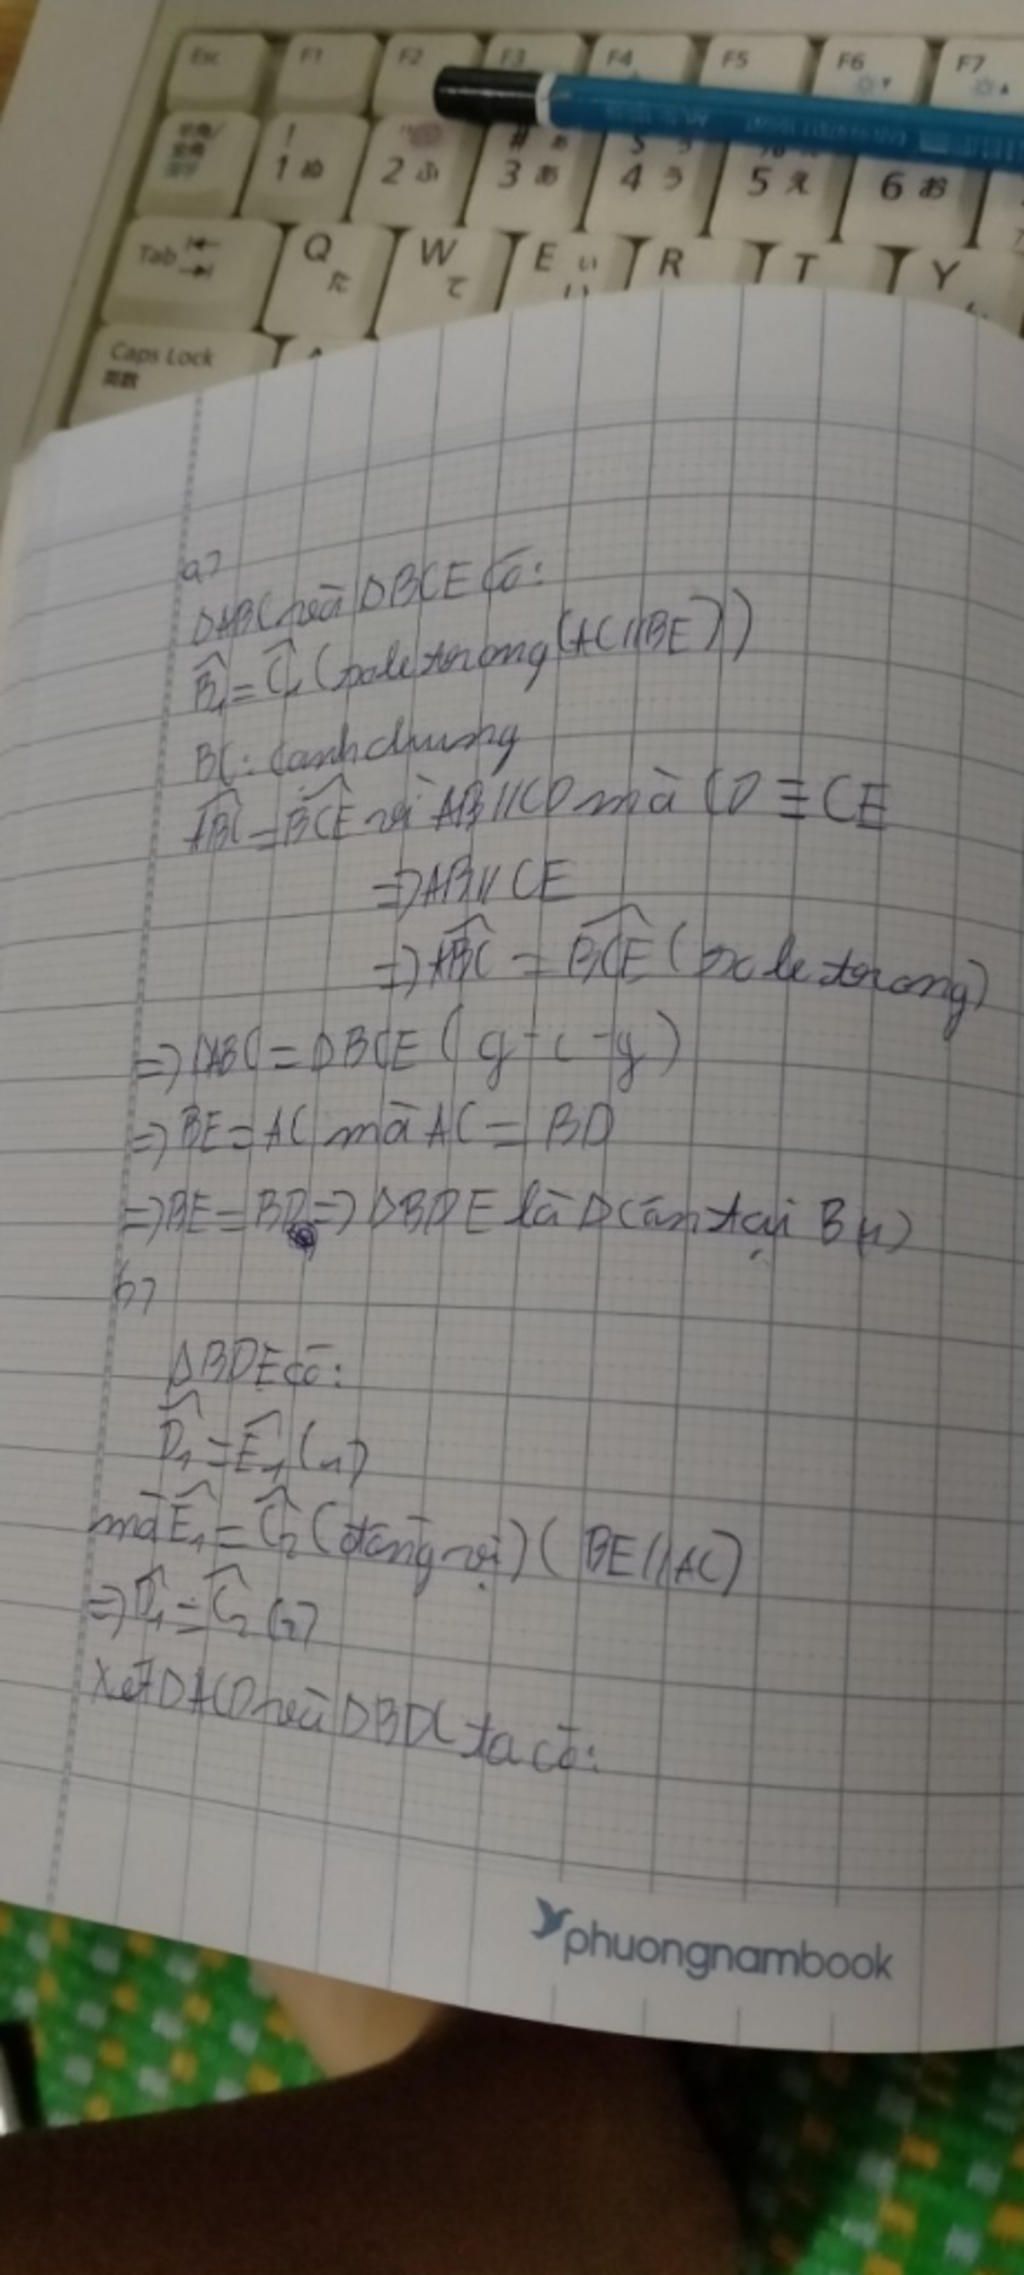 Esc F1 F2 F3 F4 F5 F6 F7
半角/全角 漢字 ! 1 ぬ 2 ふ # 3 あ 4 う 5 え 6 お
Tab Q た W て E い R T Y
Caps Lock 英数
a)
ΔABC và ΔBCE có:
B̂₁ = Ĉ₁ (sole trong (AC // BE))
BC: cạnh chung
ABC = BCE vì AB // CD mà CD ≡ CE
=> AB // CE
=> ABC = BCE (so le trong)
=> ΔABC = ΔBCE (g - c - g)
=> BE = AC mà AC = BD
=> BE = BD => ΔBDE là Δ cân tại B (1)
b)
ΔBDE có:
D̂₁ = Ê₁ (1)
mà Ê₁ = Ĉ₂ (đồng vị) (BE // AC)
=> D̂₁ = Ĉ₂ (2)
Xét ΔACD và ΔBDC ta có:
phuongnambook